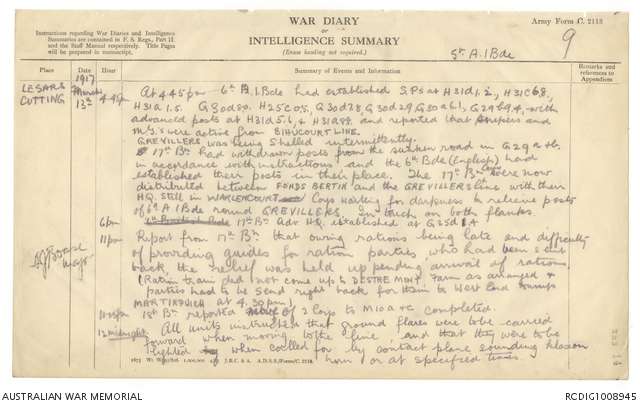 WAR DIARY
or
INTELLIGENCE SUMMARY
(Erase heading not required.)
Army Form C. 2118
Instructions regarding War Diaries and Intelligence
Summaries are contained in F. S. Regs., Part II.
and the Staff Manual respectively. Title Pages
will be prepared in manuscript.
9
5th A.I Bde
Place
Date
Hour
Summary of Events and Information
Remarks and
references to
Appendices
LESARS
CUTTING
1917
March
13th
4.45pm
At 4.45pm 6th A.I Bde had established S.Ps at H31d1.2, H31C68,
H31a1.5. G30d80. H25C05. G30d28 G30d29 G30a61, G29b94, with
advanced posts at H31d5.6, & H31a99 and reported that snipers and
M.G.s were active from BIHUCOURT LINE.
GREVILLERS was being shelled intermittently.
17th Bn had withdrawn posts from the sunken road in G29a & b.
in accordance with instructions and the 6th Bde (English) had
established their posts in their place. The 17th Bn Coys were now
distributed between FONDS BERTIN and the GREVILLERS line with their
HQ. still in WARLENCOURT Coys waiting for darkness to relieve posts
of 6th A.I Bde round GREVILLERS. In touch on both flanks
6pm
17th Bn Adv HQ established at G35d8.4
11pm
Report from 17th Bn that owing rations being late and difficulty
of providing guides for ration parties, who had been sent
back, the relief was held up pending arrival of rations
(Ration train did not come up to DESTREMONT Farm as arranged &
parties had to be send right back for them to West End dumps
MARTINPUICH at 4.30pm)
18th Bn reported of 2 Coys to M10a & c completed.
12 midnight
All units instructed that ground flares were to be carried
forward when moving to the line, and that they were to be
lighted when called for by contact plane sounding klaxon
horn or at specified times.
Major
AUSTRALIAN WAR MEMORIAL
RCDIG1008945